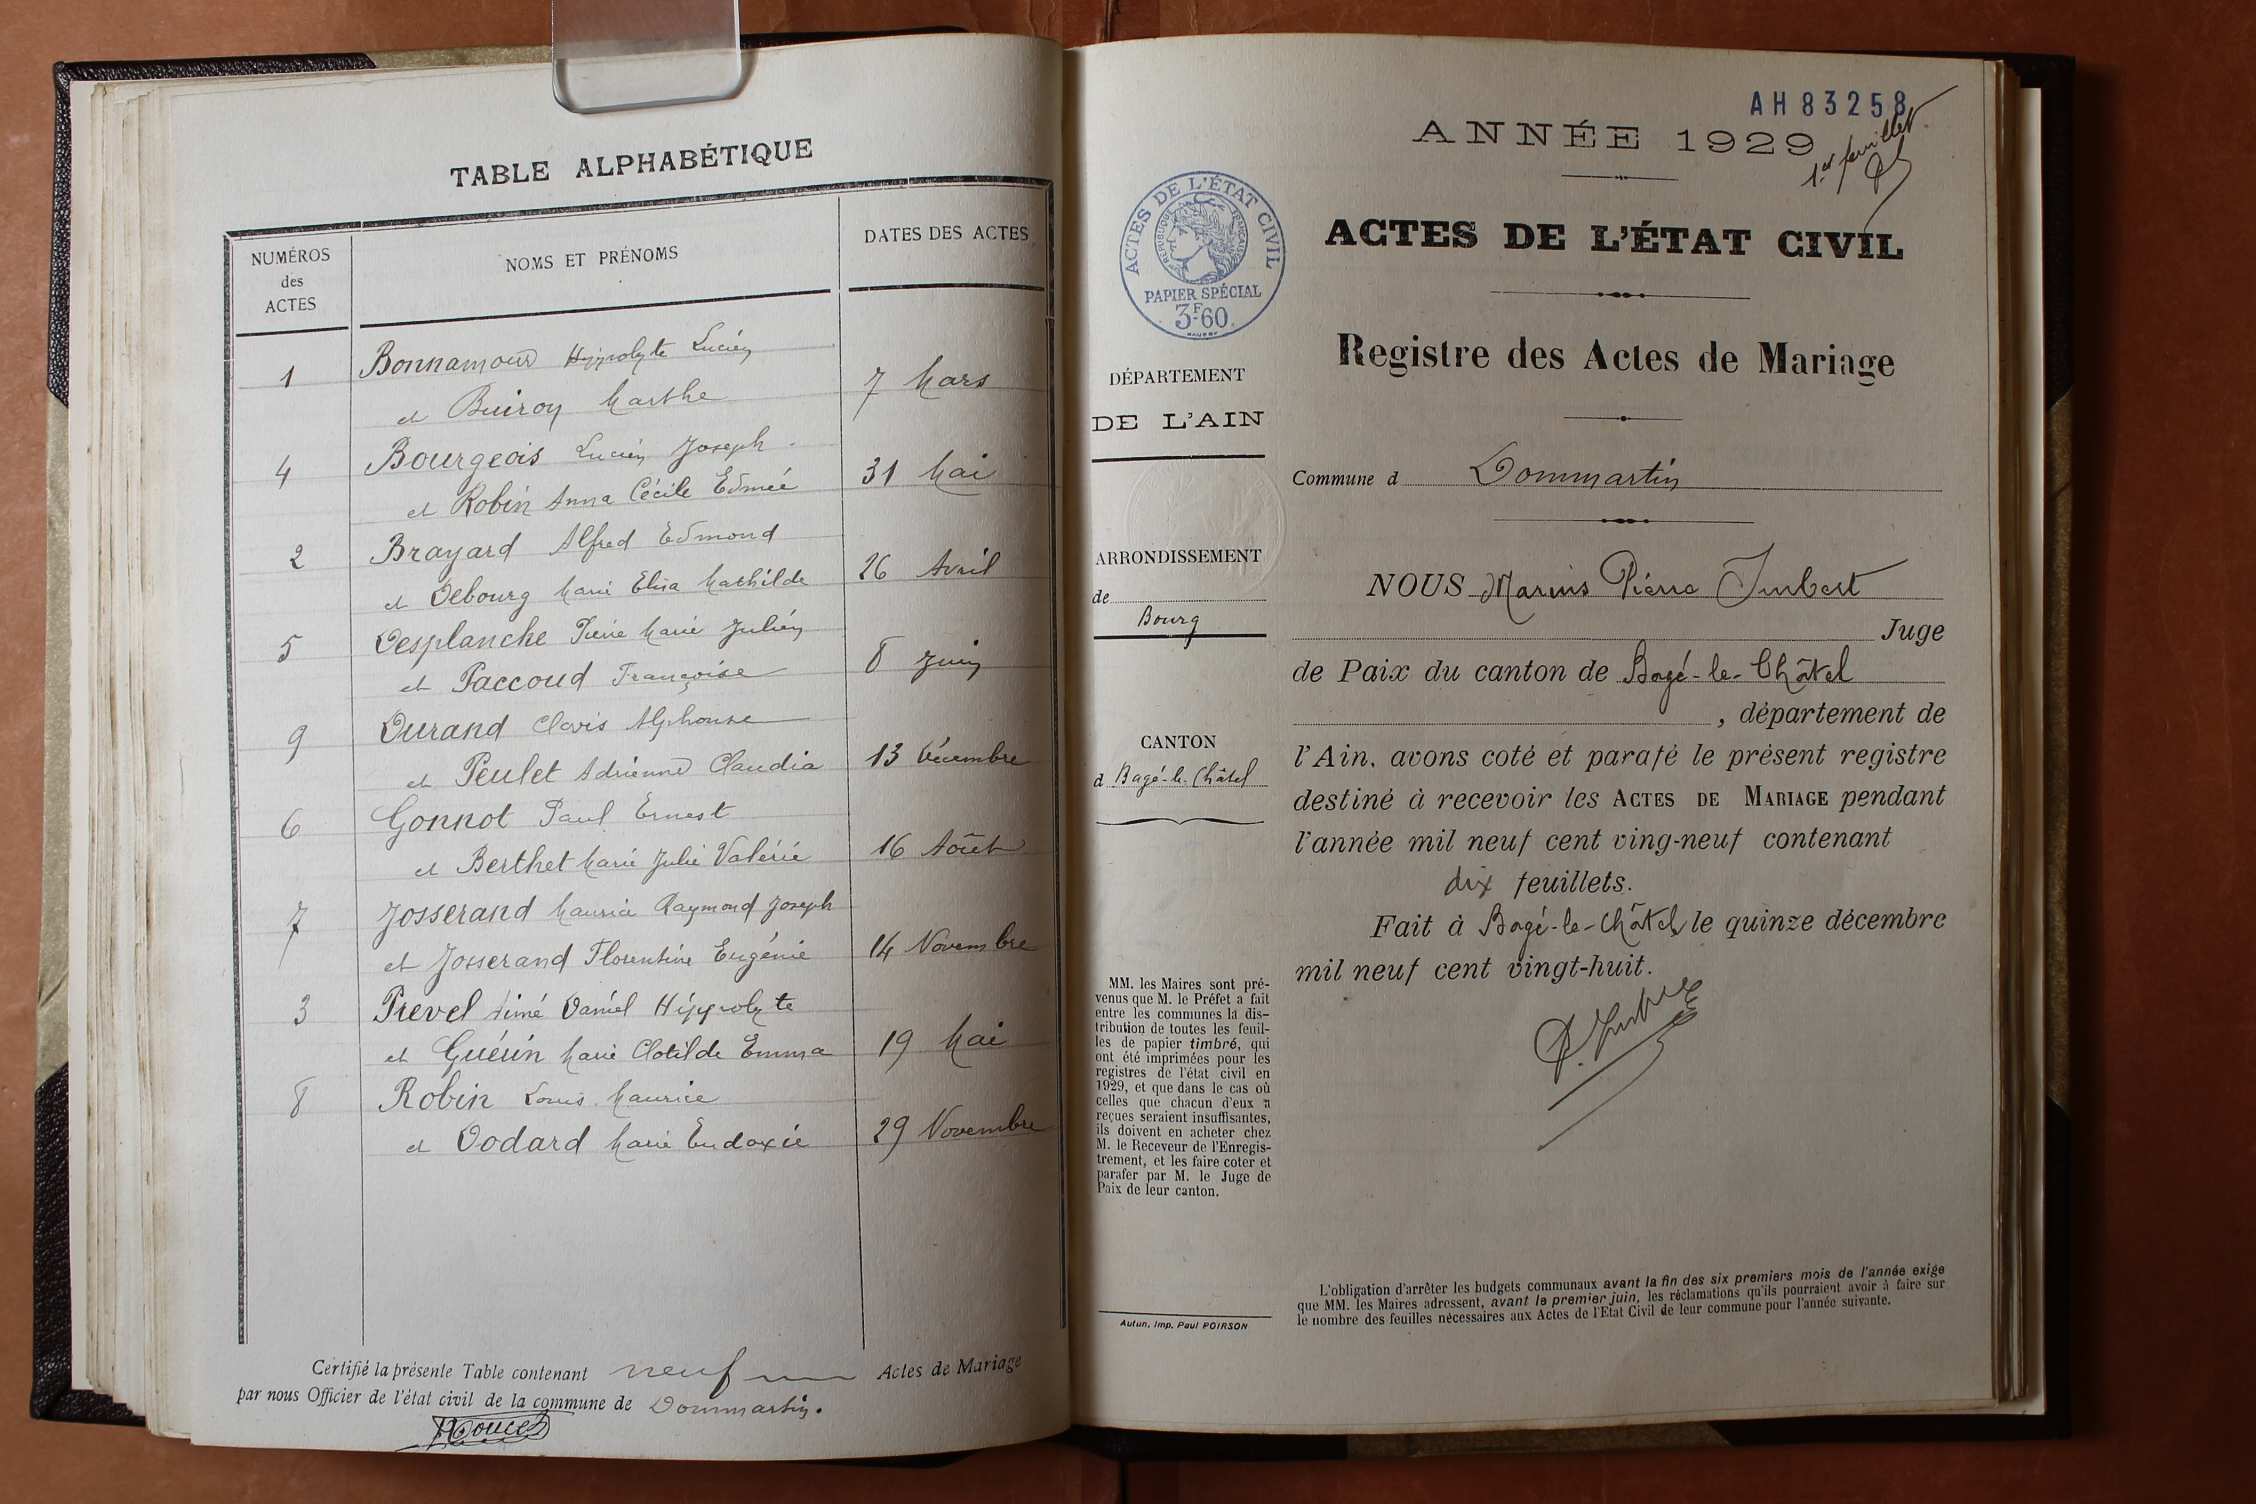 TABLE ALPHABÉTIQUE
NUMÉROS
des
ACTES
NOMS ET PRÉNOMS
DATES DES ACTES
1
Bonnamour Hyppolyte Lucien
et Buiron Marthe
7 Mars
4
Bourgeois Lucien Joseph
et Robin Anna Cécile Edmée
31 Mai
2
Brayard Alfred Edmond
et Debourg Marie Elisa Mathilde
26 Avril
5
Desplanche Pierre Marie Julien
et Paccoud Françoise
8 Juin
9
Durand Clovis Alphonse
et Peulet Adrienne Claudia
13 Décembre
6
Gonnot Paul Ernest
et Berthet Marie Julie Valérie
16 Août
7
Josserand Maurice Raymond Joseph
et Josserand Florentine Eugénie
14 Novembre
3
Prevel Aimé Daniel Hippolyte
et Guérin Marie Clotilde Emma
19 Mai
8
Robin Louis Maurice
et Dodard Marie Eudoxie
29 Novembre
Certifié la présente Table contenant neuf Actes de Mariage
par nous Officier de l'état civil de la commune de Dommartin.
AH 83258
1er feuillet
ANNÉE 1929
ACTES DE L'ÉTAT CIVIL
RÉPUBLIQUE FRANÇAISE
PAPIER SPÉCIAL
3F60
DÉPARTEMENT
DE L'AIN
ARRONDISSEMENT
de
Bourg
CANTON
d Bagé-le-Châtel
MM. les Maires sont pré-
venus que M. le Préfet a fait
entre les communes la dis-
tribution de toutes les feuil-
les de papier timbré, qui
ont été imprimées pour les
registres de l'état civil en
1929, et que dans le cas où
celles que chacun d'eux a
reçues seraient insuffisantes,
ils doivent en acheter chez
M. le Receveur de l'Enregis-
trement, et les faire coter et
parafer par M. le Juge de
Paix de leur canton.
Autun, Imp. Paul POIRSON
ACTES DE L'ÉTAT CIVIL
Registre des Actes de Mariage
Commune d Dommartin
NOUS Marius Pierre Imbert
Juge
de Paix du canton de Bagé-le-Châtel
, département de
l'Ain, avons coté et parafé le présent registre
destiné à recevoir les ACTES DE MARIAGE pendant
l'année mil neuf cent ving-neuf contenant
dix feuillets.
Fait à Bagé-le-Châtel le quinze décembre
mil neuf cent vingt-huit.
L'obligation d'arrêter les budgets communaux avant la fin des six premiers mois de l'année exige
que MM. les Maires adressent, avant le premier juin, les réclamations qu'ils pourraient avoir à faire sur
le nombre des feuilles nécessaires aux Actes de l'Etat Civil de leur commune pour l'année suivante.